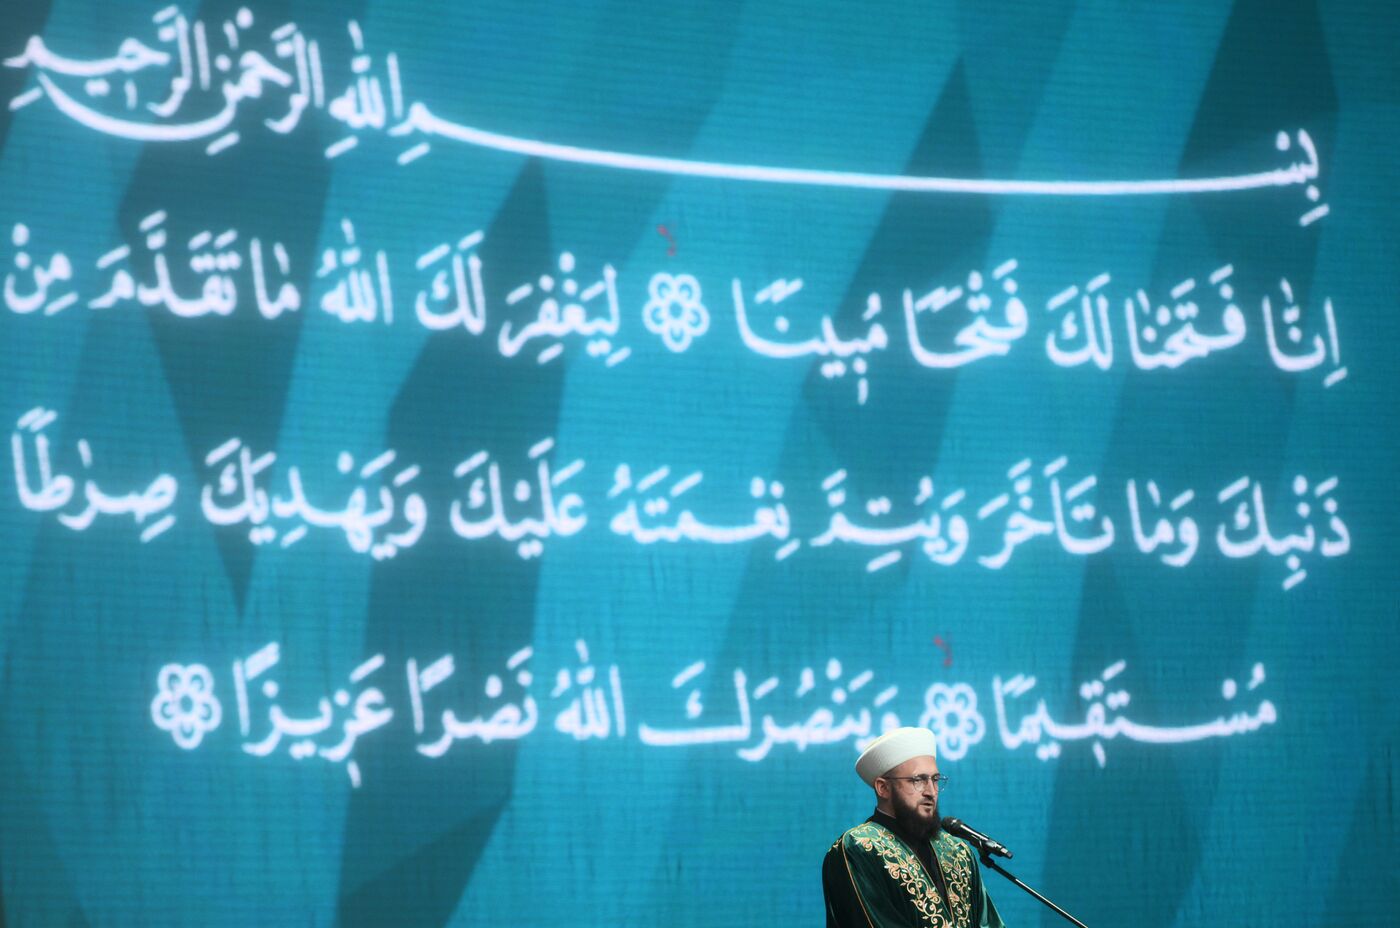 بِسْمِ اللهِ الرَّحْمٰنِ الرَّحِيمِ
اِنَّا فَتَحْنَا لَكَ فَتْحًا مُبِينًا ۞ لِيَغْفِرَ لَكَ اللهُ مَا تَقَدَّمَ مِنْ
ذَنْبِكَ وَمَا تَاَخَّرَ وَيُتِمَّ نِعْمَتَهُ عَلَيْكَ وَيَهْدِيَكَ صِرَاطًا
مُسْتَقِيمًا ۞ وَيَنْصُرَكَ اللهُ نَصْرًا عَزِيزًا ۞